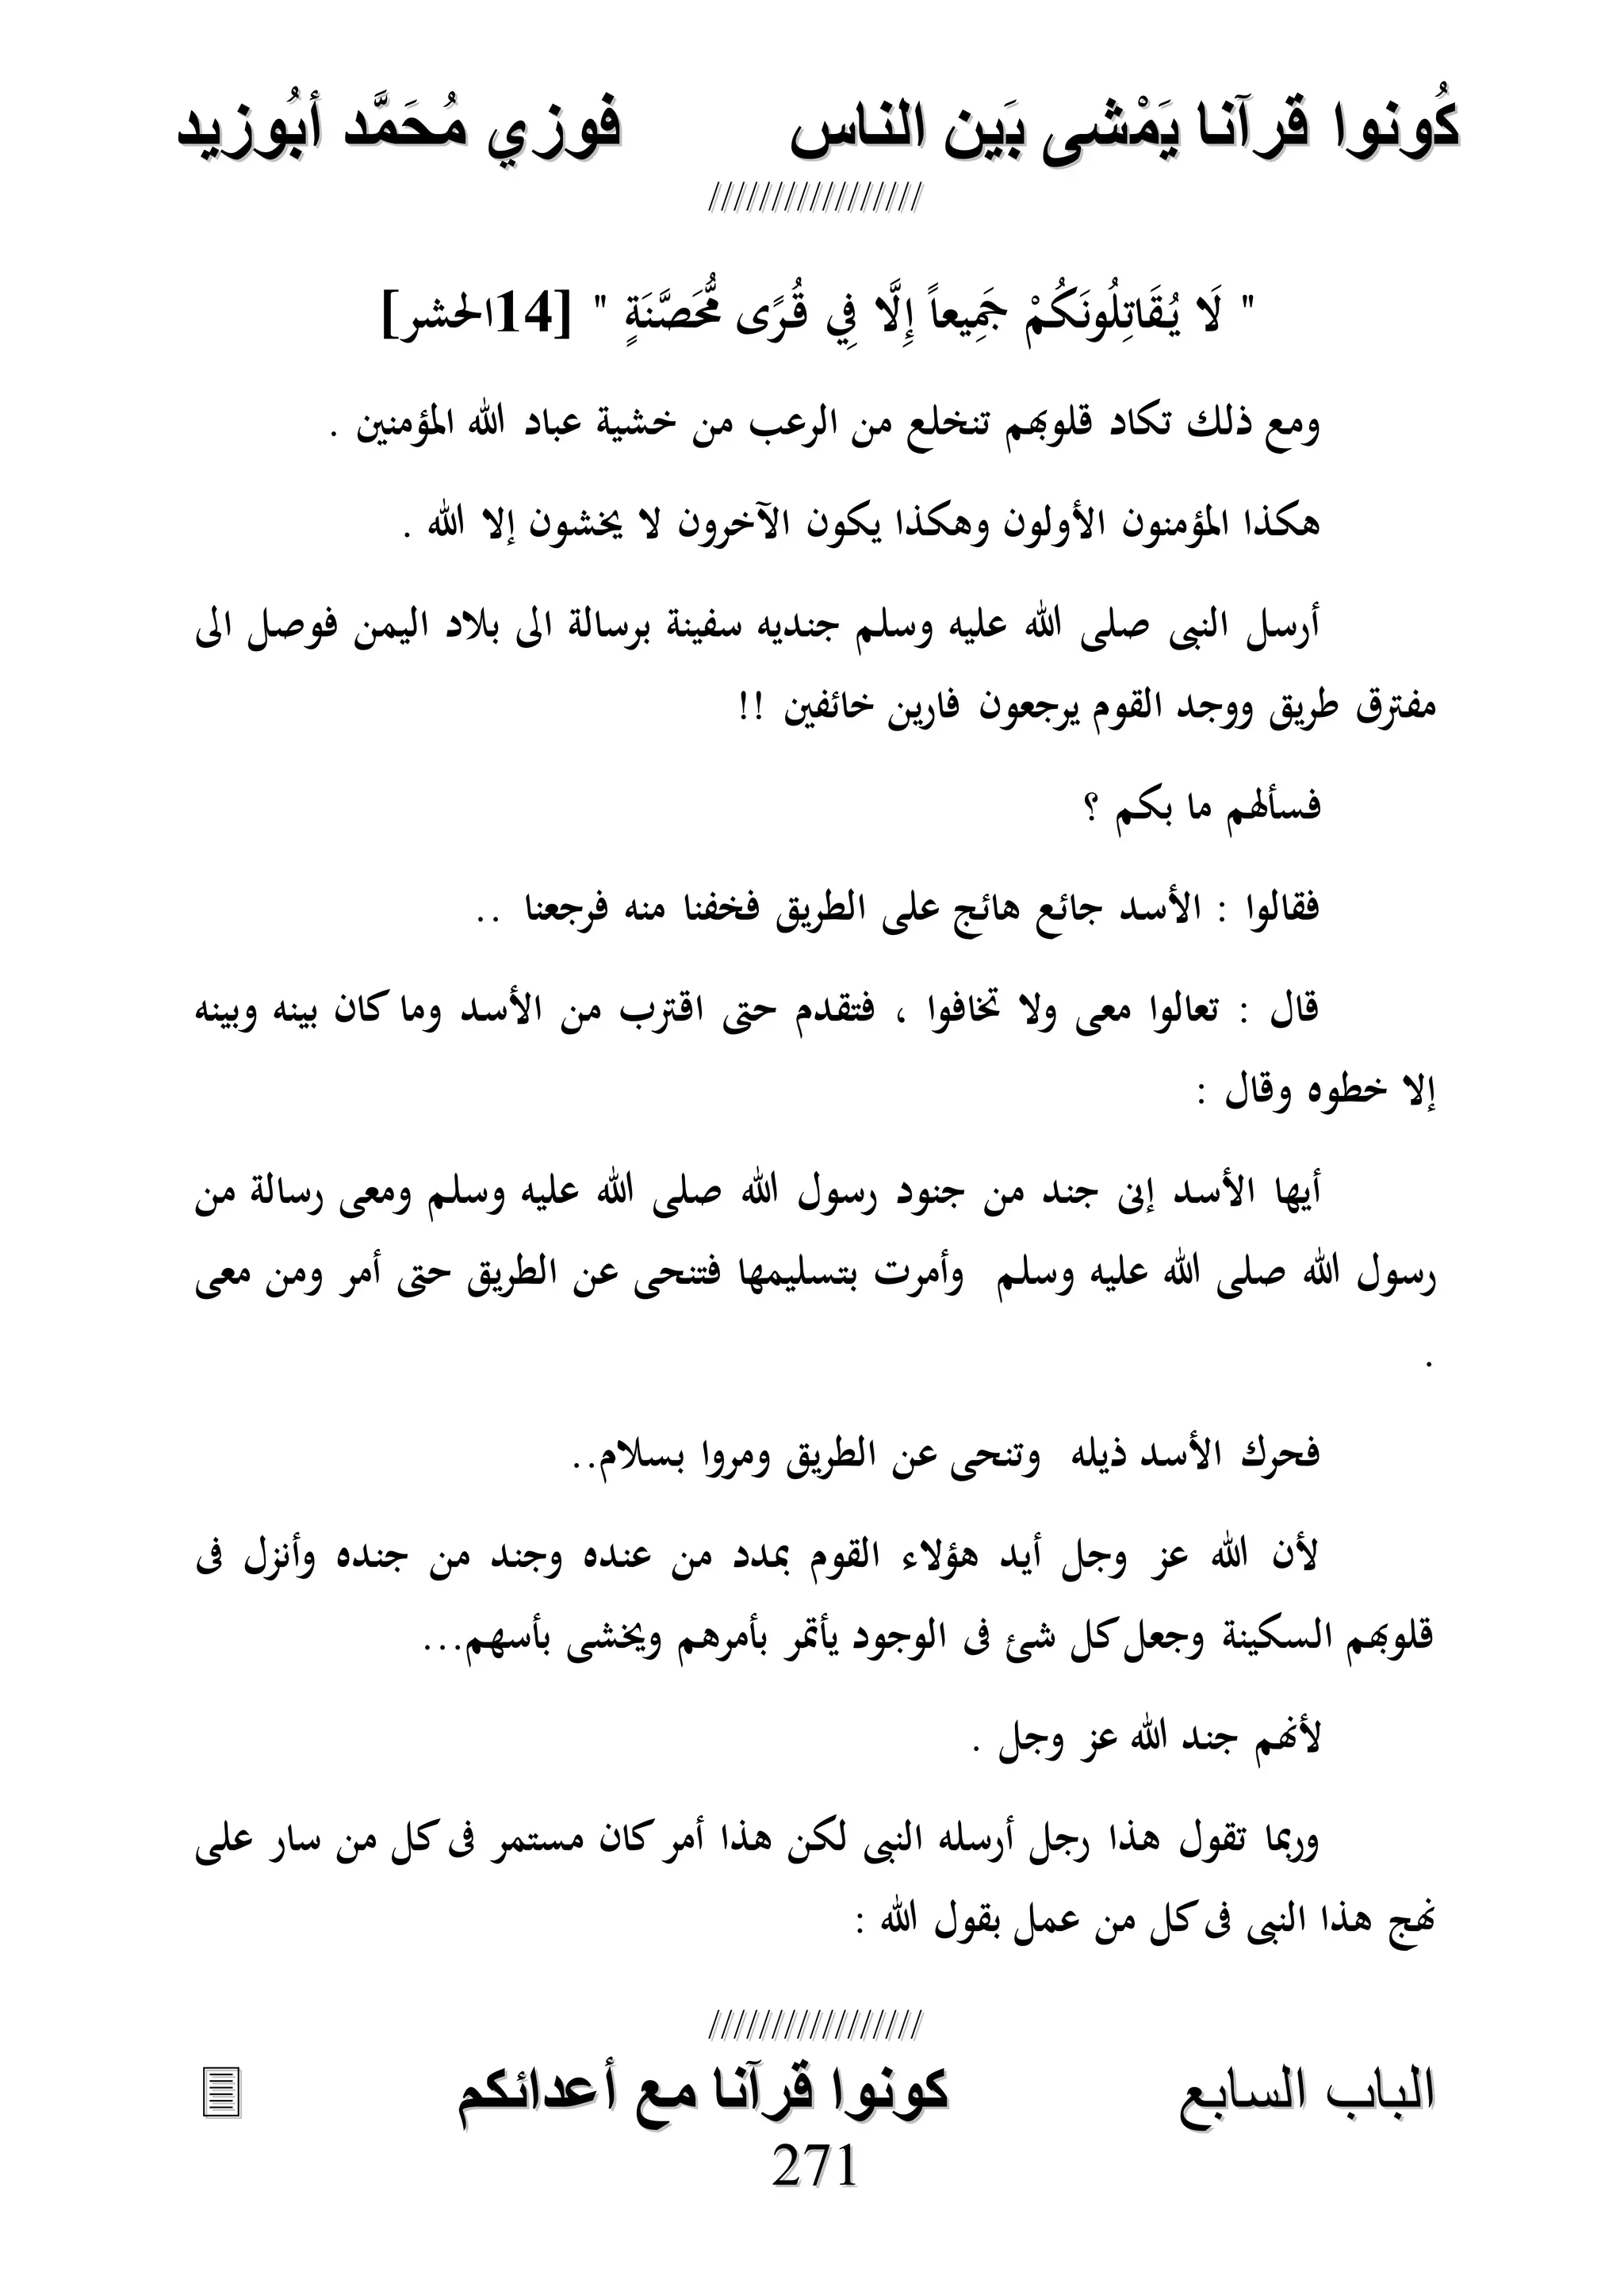 كُونوا قرآنا يَمْشى بَين الناس فوزي مُحَمَّد أبُوزيد
/////////////////
" لَا يُقَاتِلُونَكُمْ جَمِيعاً إِلَّا فِي قُرًى مُّحَصَّنَةٍ " [14الحشر]
ومع ذلك تكاد قلوبهم تنخلع من الرعب من خشية عباد الله المؤمنين .
هكذا المؤمنون الأولون وهكذا يكون الآخرون لا يخشون إلا الله .
أرسل النبى صلى الله عليه وسلم جنديه سفينة برسالة الى بلاد اليمن فوصل الى
مفترق طريق ووجد القوم يرجعون فارين خائفين !!
فسألهم ما بكم ؟
فقالوا : الأسد جائع هائج على الطريق فخفنا منه فرجعنا ..
قال : تعالوا معى ولا تخافوا ، فتقدم حتى اقترب من الأسد وما كان بينه وبينه
إلا خطوه وقال :
أيها الأسد إنى جند من جنود رسول الله صلى الله عليه وسلم ومعى رسالة من
رسول الله صلى الله عليه وسلم وأمرت بتسليمها فتنحى عن الطريق حتى أمر ومن معى
.
فحرك الأسد ذيله وتنحى عن الطريق ومروا بسلام..
لأن الله عز وجل أيد هؤلاء القوم بمدد من عنده وجند من جنده وأنزل فى
قلوبهم السكينة وجعل كل شئ فى الوجود يأتمر بأمرهم ويخشى بأسهم...
لأنهم جند الله عز وجل .
وربما تقول هذا رجل أرسله النبى لكن هذا أمر كان مستمر فى كل من سار على
نهج هذا النبى فى كل من عمل بقول الله :
/////////////////
الباب السابع كونوا قرآنا مع أعدائكم
271